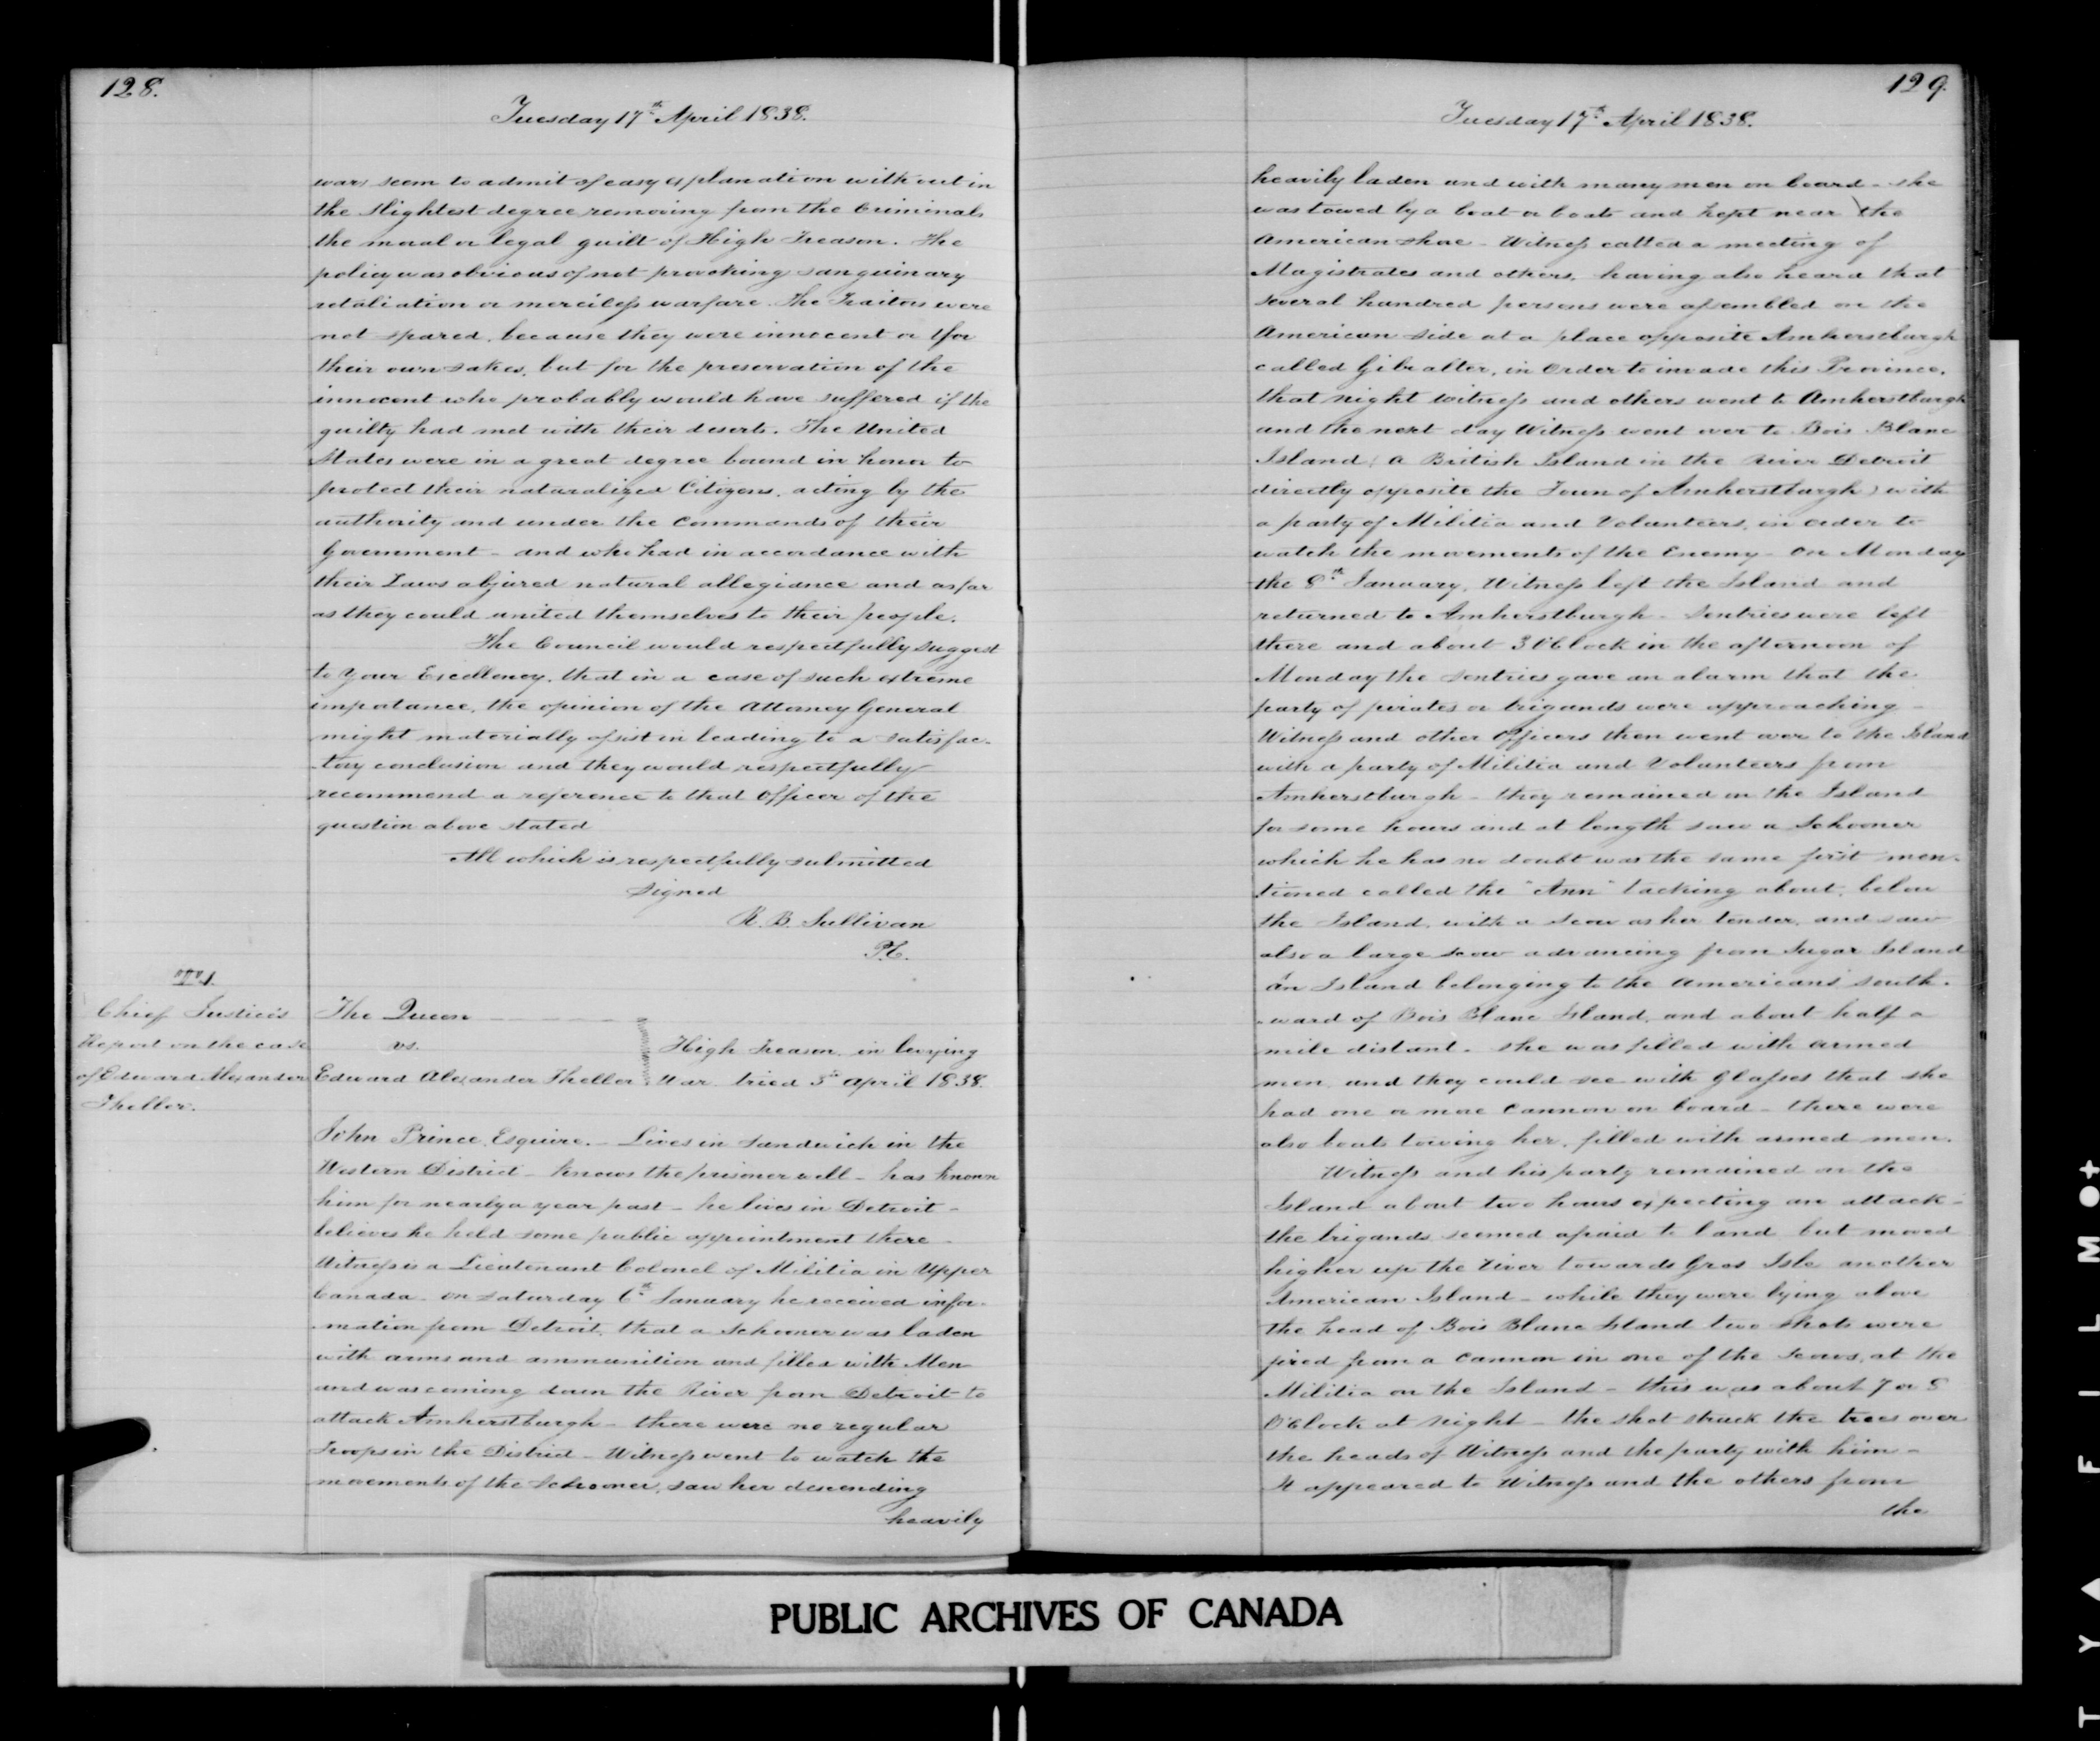 128.
Tuesday 17th April 1838.
war, seem to admit of easy explanation without in
the slightest degree removing from the Criminals
the moral or legal guilt of High Treason. The
policy was obvious of not provoking sanguinary
retaliation or merciless warfare. The Traitors were
not spared, because they were innocent or for
their own sakes, but for the preservation of the
innocent who probably would have suffered if the
guilty had met with their deserts. The United
States were in a great degree bound in honor to
protect their naturalized Citizens, acting by the
authority and under the Commands of their
Government - and who had in accordance with
their Laws abjured natural allegiance and as far
as they could united themselves to their people.
The Council would respectfully suggest
to Your Excellency, that in a case of such extreme
importance, the opinion of the Attorney General
might materially assist in leading to a satisfac-
-tory conclusion and they would respectfully
recommend a reference to that Officer of the
question above stated
All which is respectfully submitted
Signed
R. B. Sullivan
P.C.
Chief Justice's
Report on the case
of Edward Alexander
Theller.
The Queen
vs.
High Treason in levying
Edward Alexander Theller War tried 5th April 1838.
John Prince, Esquire. - Lives in Sandwich in the
Western District - knows the prisoner well - has known
him for nearly a year past - he lives in Detroit -
believes he held some public appointment there -
Witness is a Lieutenant Colonel of Militia in Upper
Canada - on Saturday 6th January he received infor-
-mation from Detroit, that a Schooner was laden
with arms and ammunition and filled with Men
and was coming down the River from Detroit to
attack Amherstburgh - there were no regular
Troops in the District - Witness went to watch the
movements of the Schooner, saw her descending
heavily
129.
Tuesday 17th April 1838.
heavily laden and with many men on board - she
was towed by a boat or boats and kept near the
American shore - Witness called a meeting of
Magistrates and others, having also heard that
several hundred persons were assembled on the
American side at a place opposite Amherstburgh
called Gibralter, in order to invade this Province,
that night witness and others went to Amherstburgh
and the next day Witness went over to Bois Blanc
Island (a British Island in the River Detroit
directly opposite the Town of Amherstburgh) with
a party of Militia and Volunteers, in order to
watch the movements of the Enemy - On Monday
the 8th January, Witness left the Island and
returned to Amherstburgh - Sentries were left
there and about 3 O'Clock in the afternoon of
Monday the sentries gave an alarm that the
party of pirates or brigands were approaching -
Witness and other Officers then went over to the Island
with a party of Militia and Volunteers from
Amherstburgh - they remained on the Island
for some hours and at length saw a Schooner
which he has no doubt was the same first men-
tioned called the "Ann" tacking about, below
the Island, with a Scow as her tender, and saw
also a large scow advancing from Sugar Island
an Island belonging to the Americans south-
-ward of Bois Blanc Island, and about half a
mile distant. She was filled with armed
men, and they could see with Glasses that she
had one or more Cannon on board - there were
also boats towing her, filled with armed men.
Witness and his party remained on the
Island about two hours expecting an attack -
the brigands seemed afraid to land but moved
higher up the River towards Gros Isle another
American Island - while they were lying above
the head of Bois Blanc Island two shots were
fired from a Cannon in one of the Scows, at the
Militia on the Island - this was about 7 or 8
O'Clock at night - the shot struck the trees over
the heads of Witness and the party with him -
It appeared to Witness and the others from
the
PUBLIC ARCHIVES OF CANADA